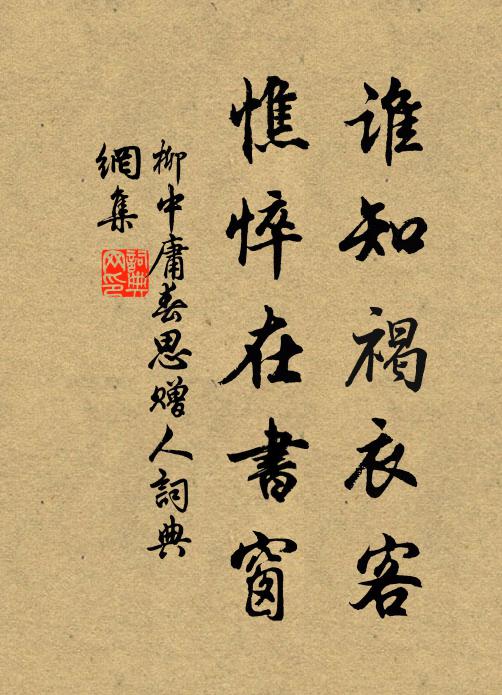 谁知褐衣客
憔悴在書窗
柳中庸春思赠人詞典
網集
詞典
网印